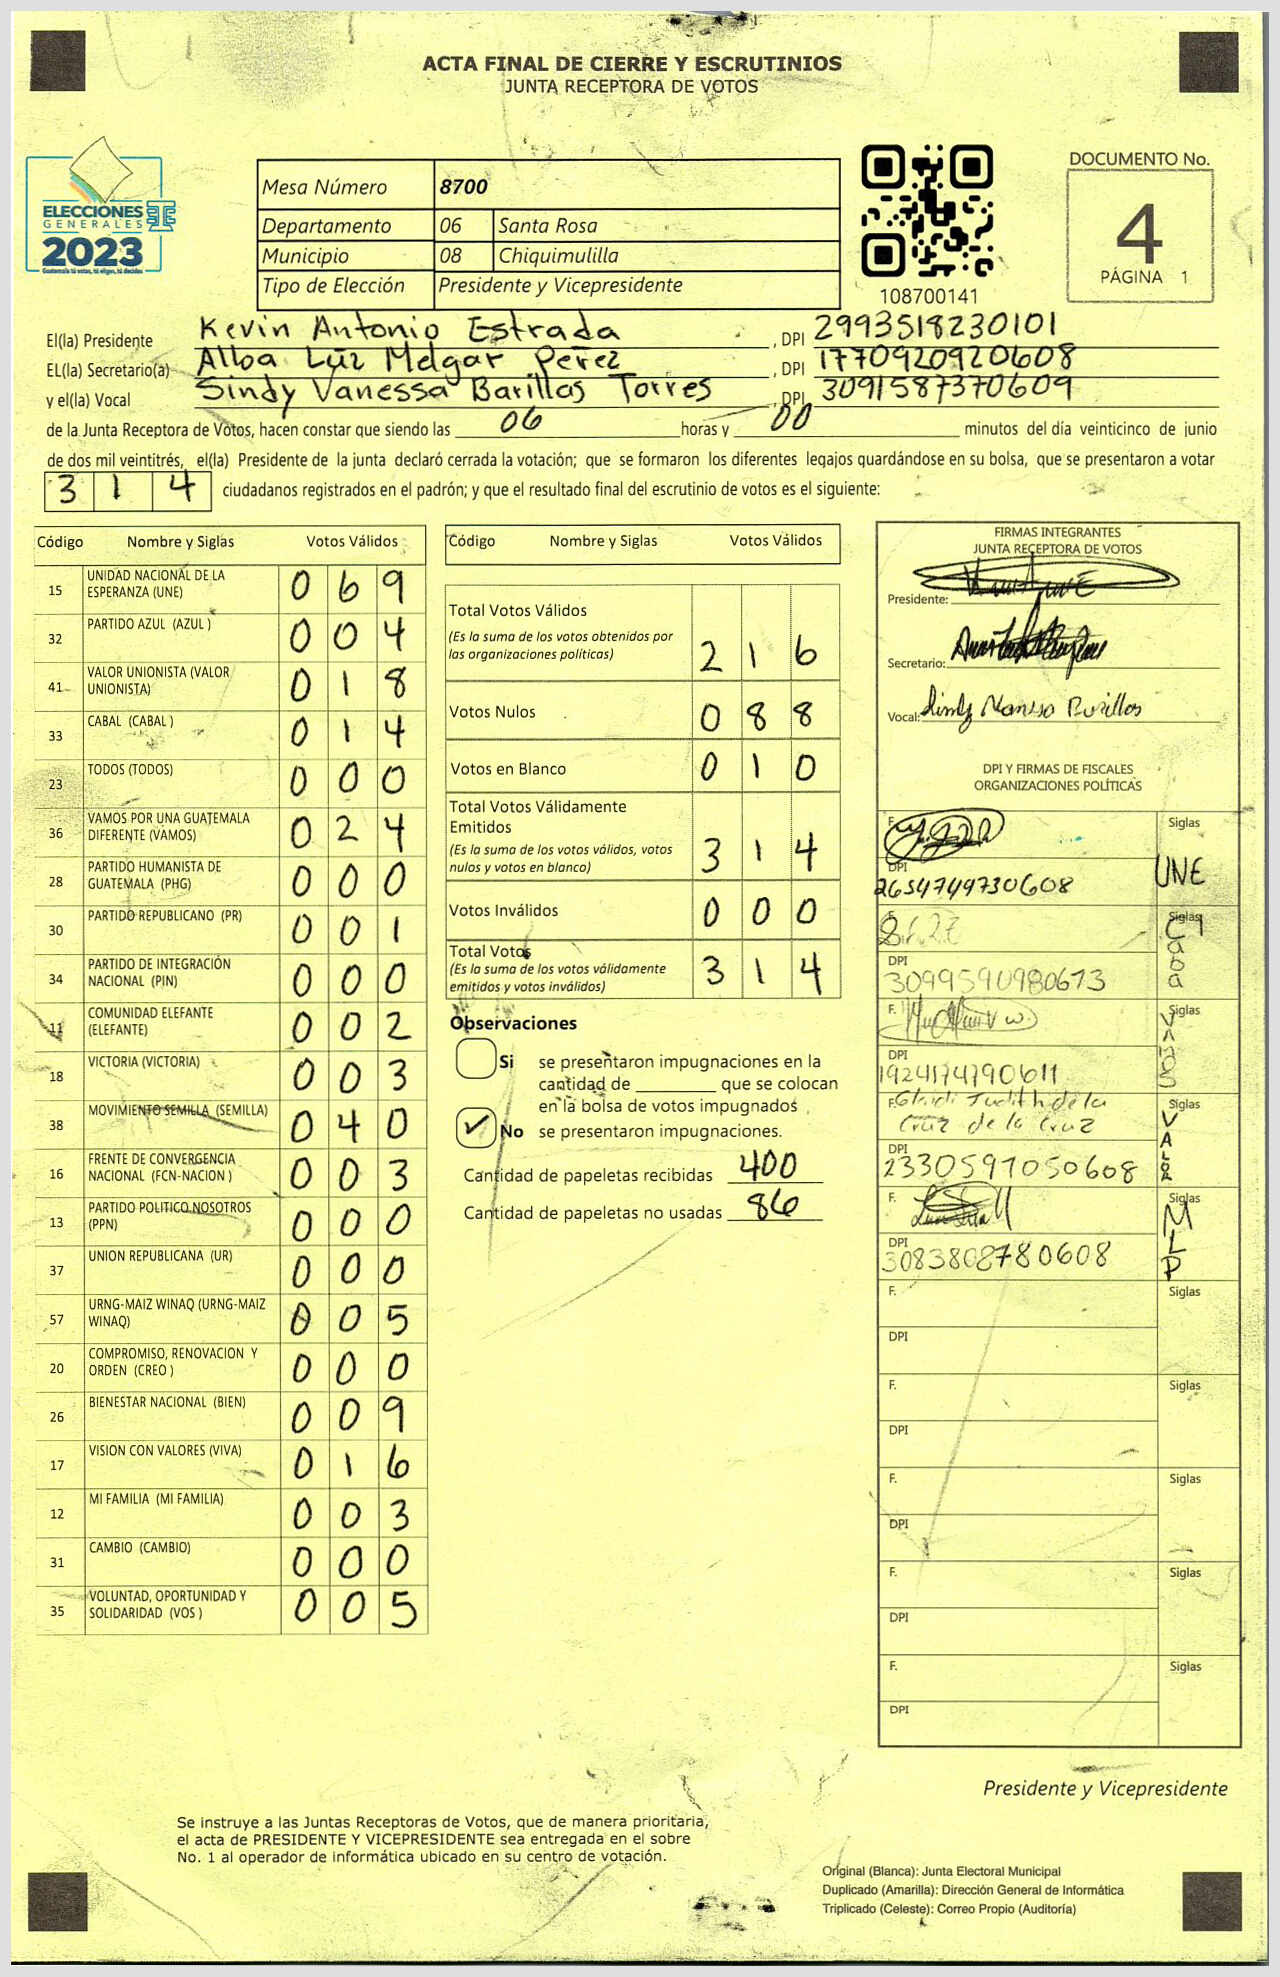 ACTA FINAL DE CIERRE Y ESCRUTINIOS
JUNTA RECEPTORA DE VOTOS
ELECCIONES
GENERALES
2023
Guatemala tú votas, tú eliges, tú decides
Mesa Número 8700
Departamento 06 Santa Rosa
Municipio 08 Chiquimulilla
Tipo de Elección Presidente y Vicepresidente
108700141
DOCUMENTO No.
4
PÁGINA 1
El(la) Presidente Kevin Antonio Estrada , DPI 2993518230101
EL(la) Secretario(a) Alba Luz Melgar Perez , DPI 1770920920608
y el(la) Vocal Sindy Vanessa Barillas Torres , DPI 3091587370609
de la Junta Receptora de Votos, hacen constar que siendo las 06 horas y 00 minutos del día veinticinco de junio
de dos mil veintitrés, el(la) Presidente de la junta declaró cerrada la votación; que se formaron los diferentes legajos guardándose en su bolsa, que se presentaron a votar
314 ciudadanos registrados en el padrón; y que el resultado final del escrutinio de votos es el siguiente:
Código Nombre y Siglas Votos Válidos
15 UNIDAD NACIONAL DE LA ESPERANZA (UNE) 069
32 PARTIDO AZUL (AZUL ) 004
41 VALOR UNIONISTA (VALOR UNIONISTA) 018
33 CABAL (CABAL ) 014
23 TODOS (TODOS) 000
36 VAMOS POR UNA GUATEMALA DIFERENTE (VAMOS) 024
28 PARTIDO HUMANISTA DE GUATEMALA (PHG) 000
30 PARTIDO REPUBLICANO (PR) 001
34 PARTIDO DE INTEGRACIÓN NACIONAL (PIN) 000
11 COMUNIDAD ELEFANTE (ELEFANTE) 002
18 VICTORIA (VICTORIA) 003
38 MOVIMIENTO SEMILLA (SEMILLA) 040
16 FRENTE DE CONVERGENCIA NACIONAL (FCN-NACION ) 003
13 PARTIDO POLITICO NOSOTROS (PPN) 000
37 UNION REPUBLICANA (UR) 000
57 URNG-MAIZ WINAQ (URNG-MAIZ WINAQ) 005
20 COMPROMISO, RENOVACION Y ORDEN (CREO ) 000
26 BIENESTAR NACIONAL (BIEN) 009
17 VISION CON VALORES (VIVA) 016
12 MI FAMILIA (MI FAMILIA) 003
31 CAMBIO (CAMBIO) 000
35 VOLUNTAD, OPORTUNIDAD Y SOLIDARIDAD (VOS ) 005
Código Nombre y Siglas Votos Válidos
Total Votos Válidos
(Es la suma de los votos obtenidos por
las organizaciones políticas) 216
Votos Nulos 088
Votos en Blanco 010
Total Votos Válidamente
Emitidos
(Es la suma de los votos válidos, votos
nulos y votos en blanco) 314
Votos Inválidos 000
Total Votos
(Es la suma de los votos válidamente
emitidos y votos inválidos) 314
Observaciones
Si se presentaron impugnaciones en la
cantidad de ________ que se colocan
en la bolsa de votos impugnados
✓ No se presentaron impugnaciones.
Cantidad de papeletas recibidas 400
Cantidad de papeletas no usadas 86
FIRMAS INTEGRANTES
JUNTA RECEPTORA DE VOTOS
Presidente:
Secretario:
Vocal: Sindy Barillas
DPI Y FIRMAS DE FISCALES
ORGANIZACIONES POLÍTICAS
F. Siglas
DPI
2654749730608 UNE
Siglas
DPI
3099590980673
F. Siglas
DPI VAMOS
1924174790611
F. Gladi Judith de la Siglas
Cruz de la Cruz
DPI VALOR
2330597050608
F. Siglas
DPI MLP
3083808780608
F. Siglas
DPI
F. Siglas
DPI
F. Siglas
DPI
F. Siglas
DPI
F. Siglas
DPI
Presidente y Vicepresidente
Se instruye a las Juntas Receptoras de Votos, que de manera prioritaria,
el acta de PRESIDENTE Y VICEPRESIDENTE sea entregada en el sobre
No. 1 al operador de informática ubicado en su centro de votación.
Original (Blanca): Junta Electoral Municipal
Duplicado (Amarilla): Dirección General de Informática
Triplicado (Celeste): Correo Propio (Auditoría)